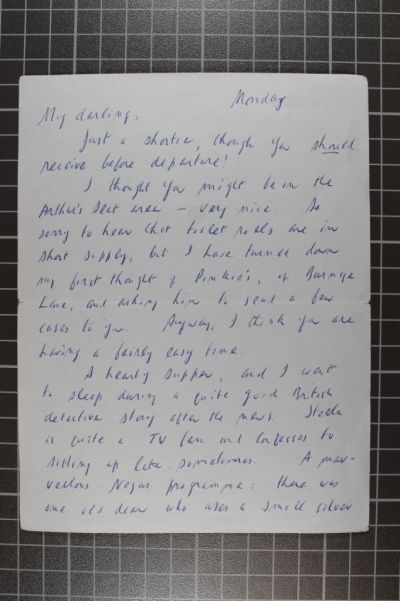 Monday
My darling,
Just a shortie, though you should
receive before departure!
I thought you might be in the
Arthur's Seat area — very nice. So
sorry to hear that toilet rolls are in
short supply, but I have turned down
my first thought of of
Lane, and asking him to send a few
cases to you. Anyway, I think you are
having a fairly easy time.
A hearty supper, and I went
to sleep during a quite good British
detective story after the news. Stella
is quite a TV fan and confesses to
sitting up late sometimes. A mar-
vellous programme: there was
one old dear who uses a small silver